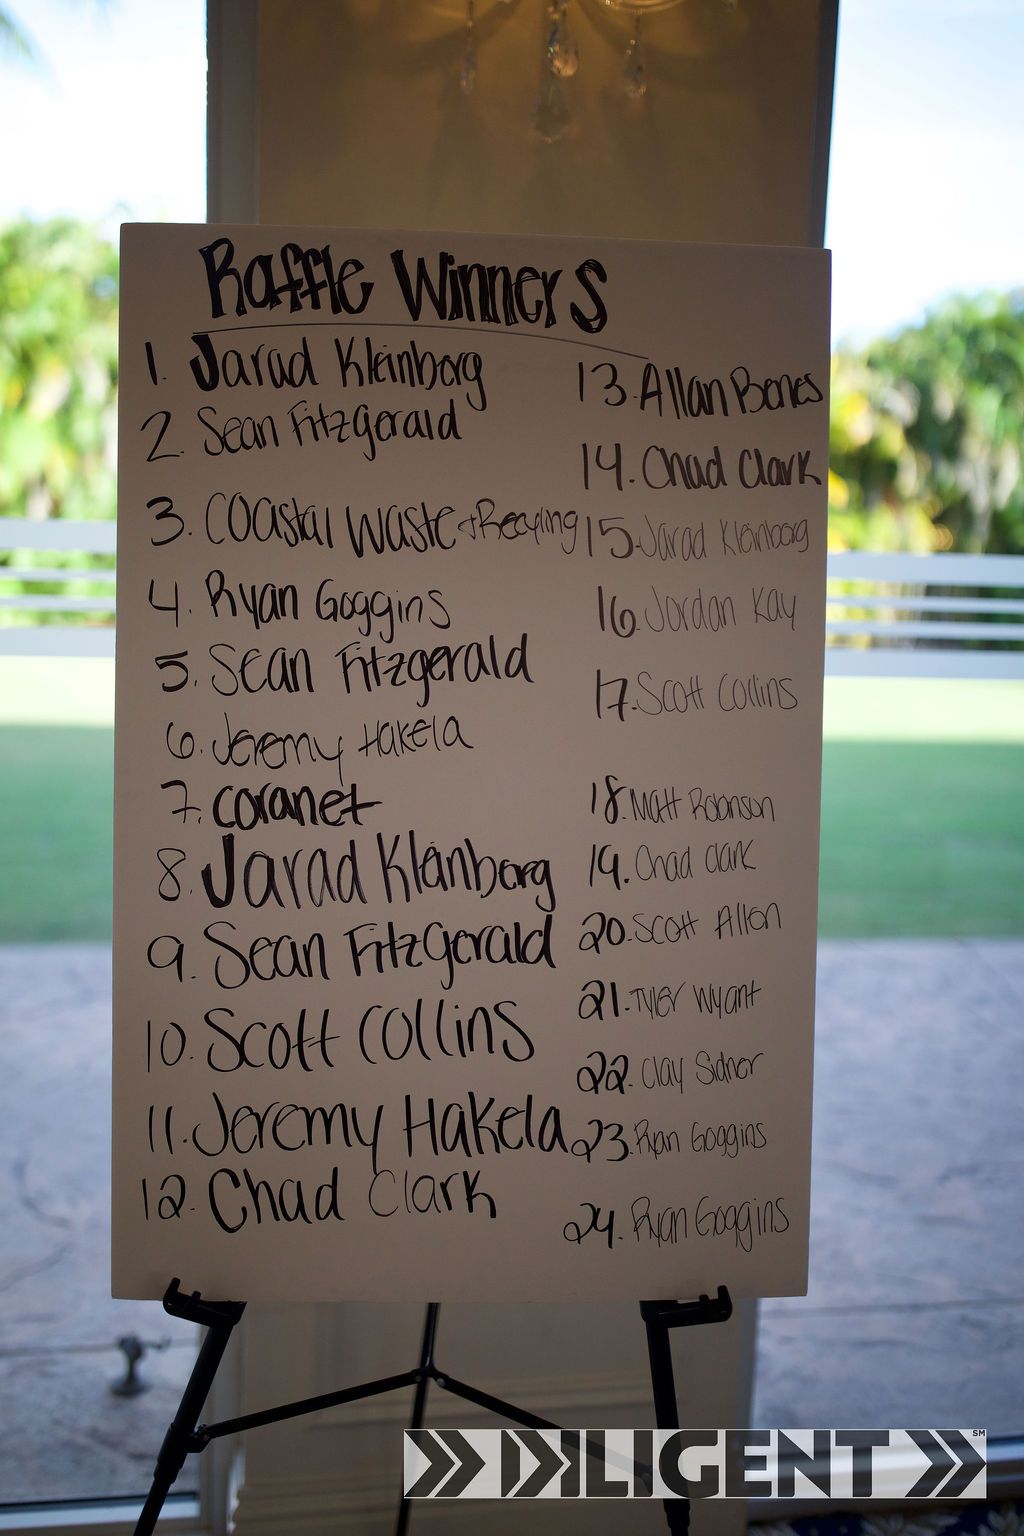 Raffle Winners
1. Jarad Kleinborg
2. Sean Fitzgerald
3. Coastal Waste + Recycling
4. Ryan Goggins
5. Sean Fitzgerald
6. Jeremy Hakela
7. coranet
8. Jarad Kleinborg
9. Sean Fitzgerald
10. Scott Collins
11. Jeremy Hakela
12. Chad Clark
13. Allan Benes
14. Chad Clark
15. Jarad Kleinborg
16. Jordan Kay
17. Scott Collins
18. Matt Robinson
19. Chad Clark
20. Scott Allen
21. Tyler Wyant
22. Clay Sidner
23. Ryan Goggins
24. Ryan Goggins
DILIGENT SM